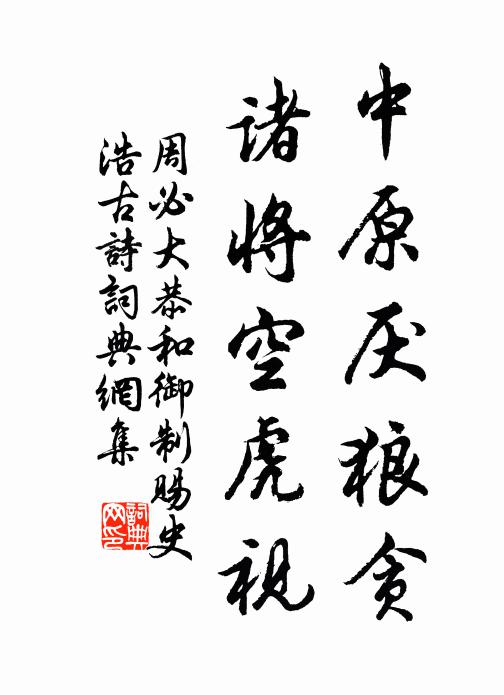 中原厌狼贪
诸将空虎视
周必大恭和御制赐史
浩古詩詞典網集
詞典
网印